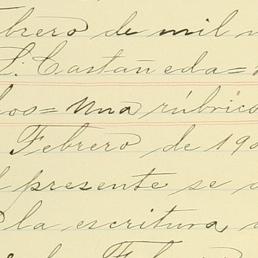 brero de mil n
L. Castañeda=
los=Una rúbrica
Febrero de 19
presente se
la escritura,